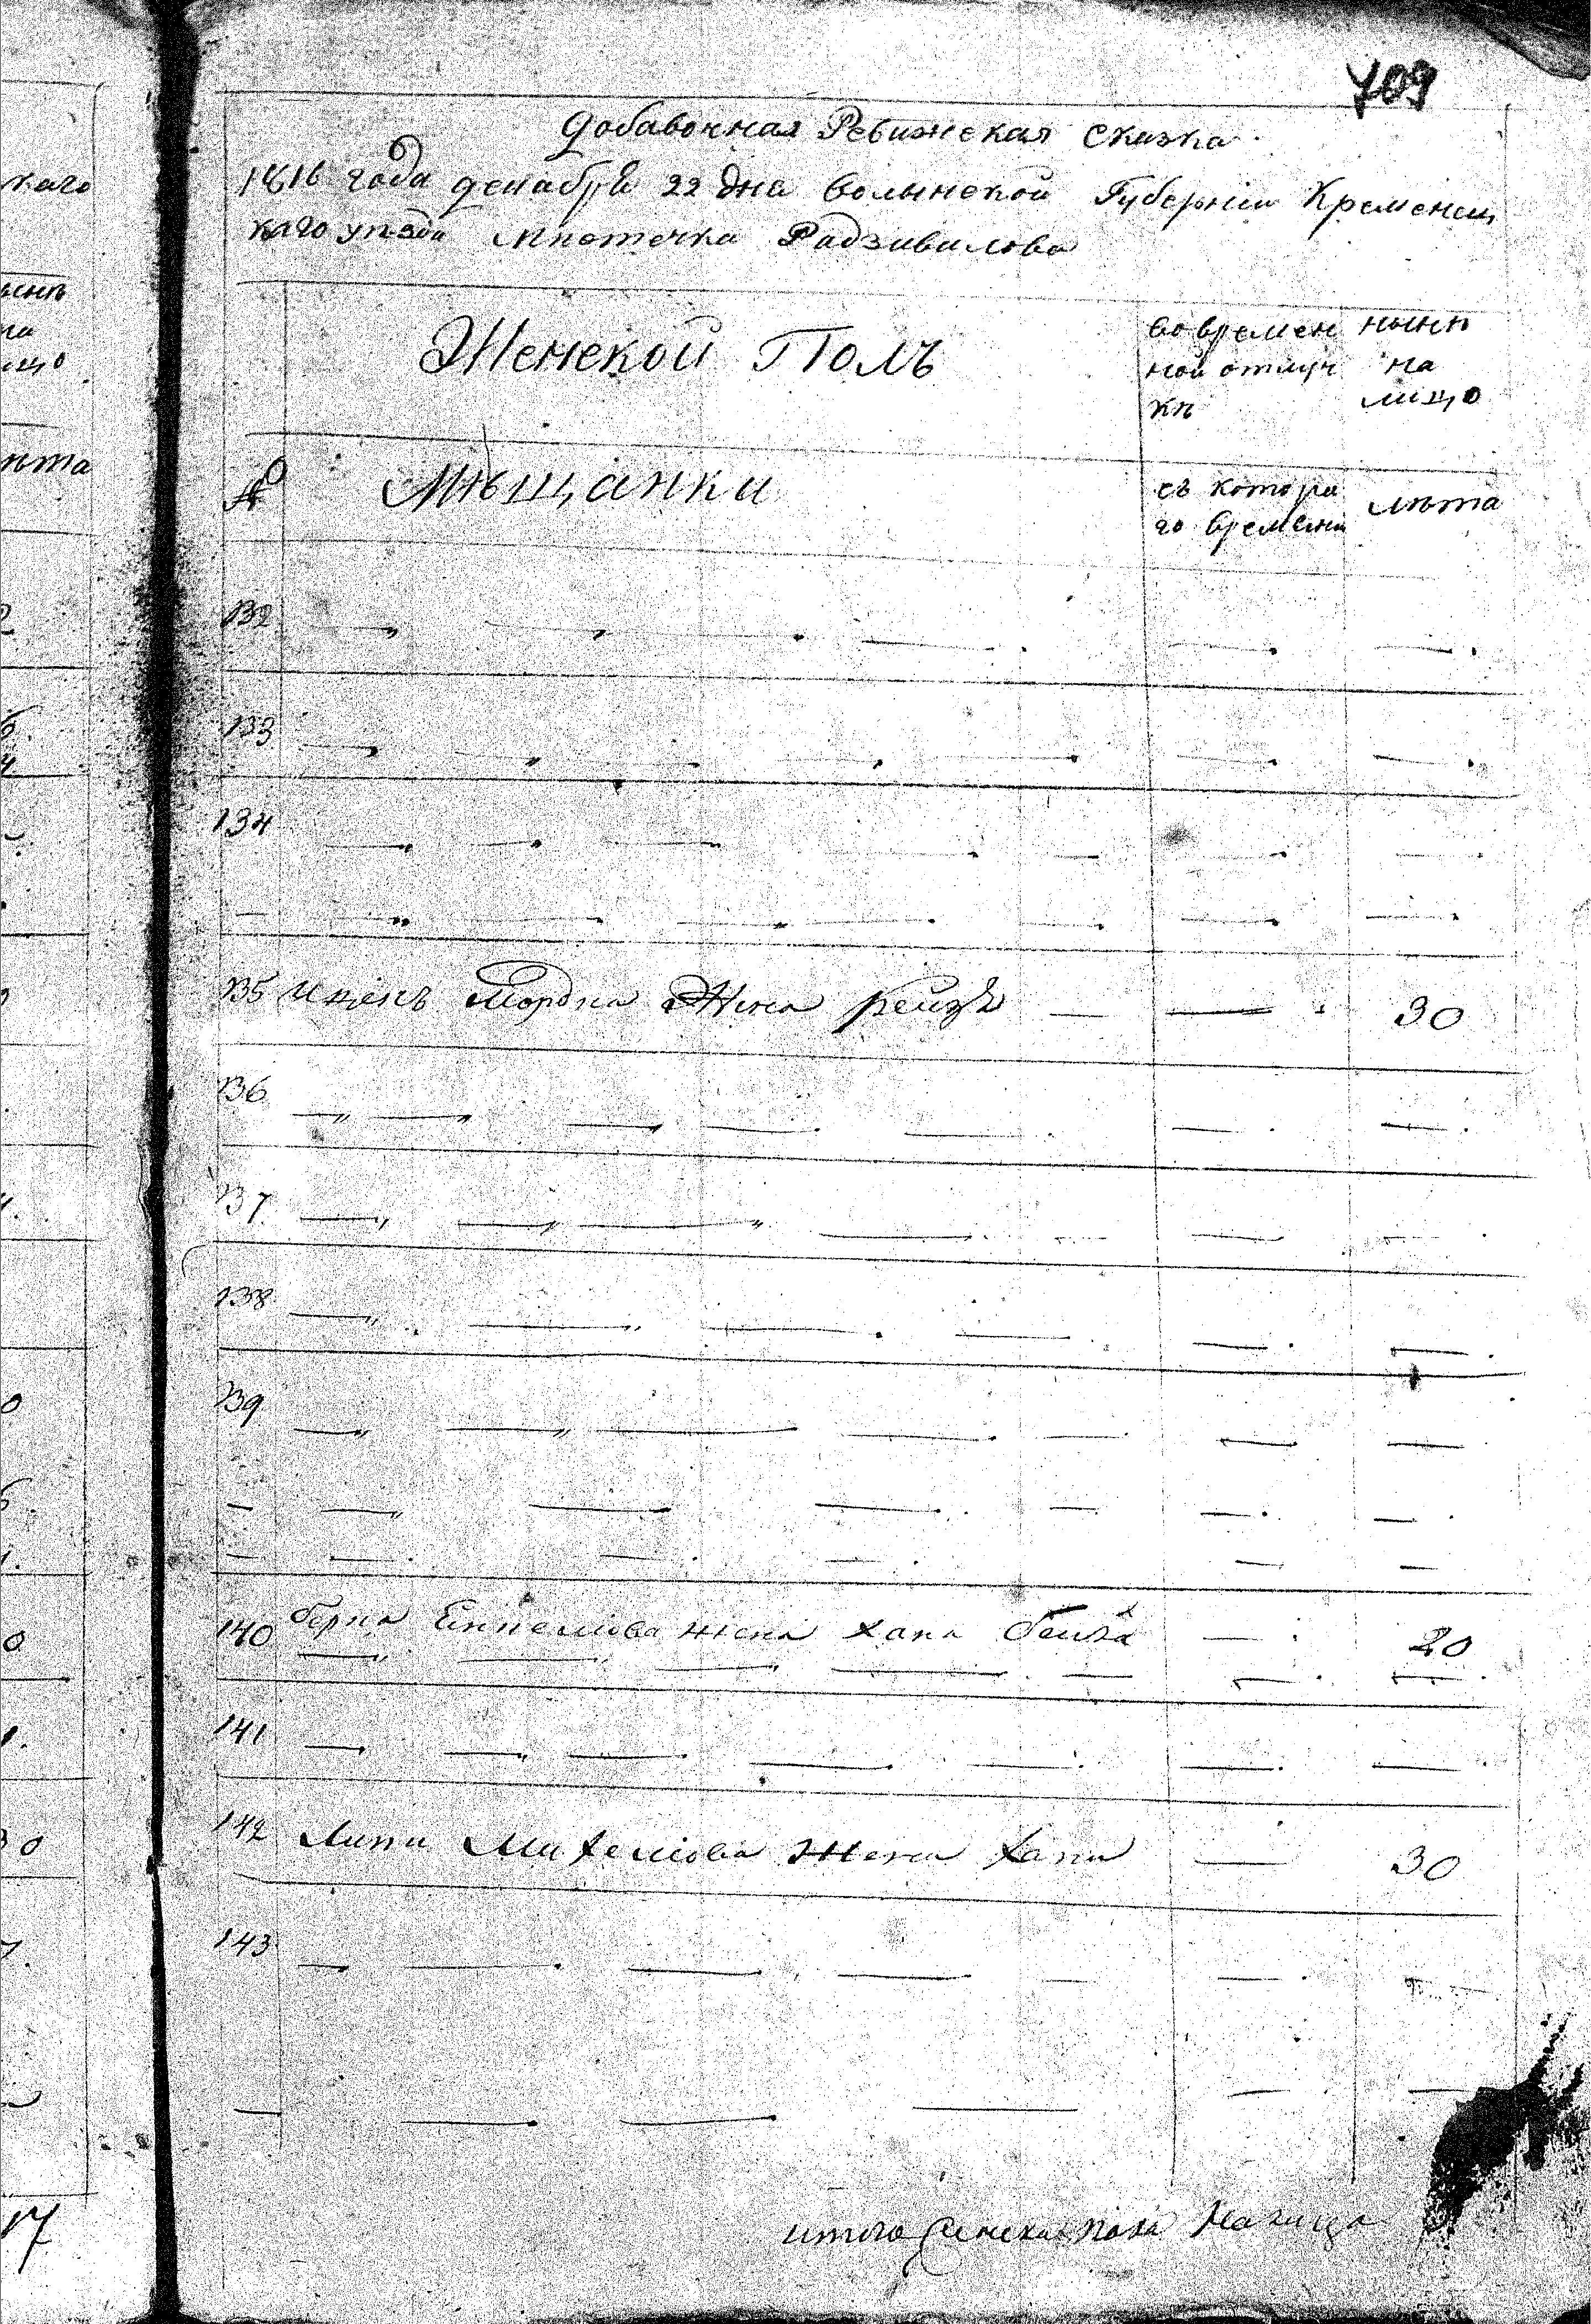 709
каго
Добавочная Ревижская Сказка
1816 года декабря 22 дня Волынской Губернiи Кременец
каго уѣзда мѣстечка Радзивилова
Женской Полъ
во времен
ной отлуч
кѣ
нынѣ
на
лицо
№
Мѣщанки
съ котора
го времени
лѣта
132
133
134
135 Ицекъ Мордка Жена рейзя 30
136
137
138
139
140 берка жена хана бейла 20
141
142 Липи Михелiова Жена хана 30
143
итого женска пола На лицо
17